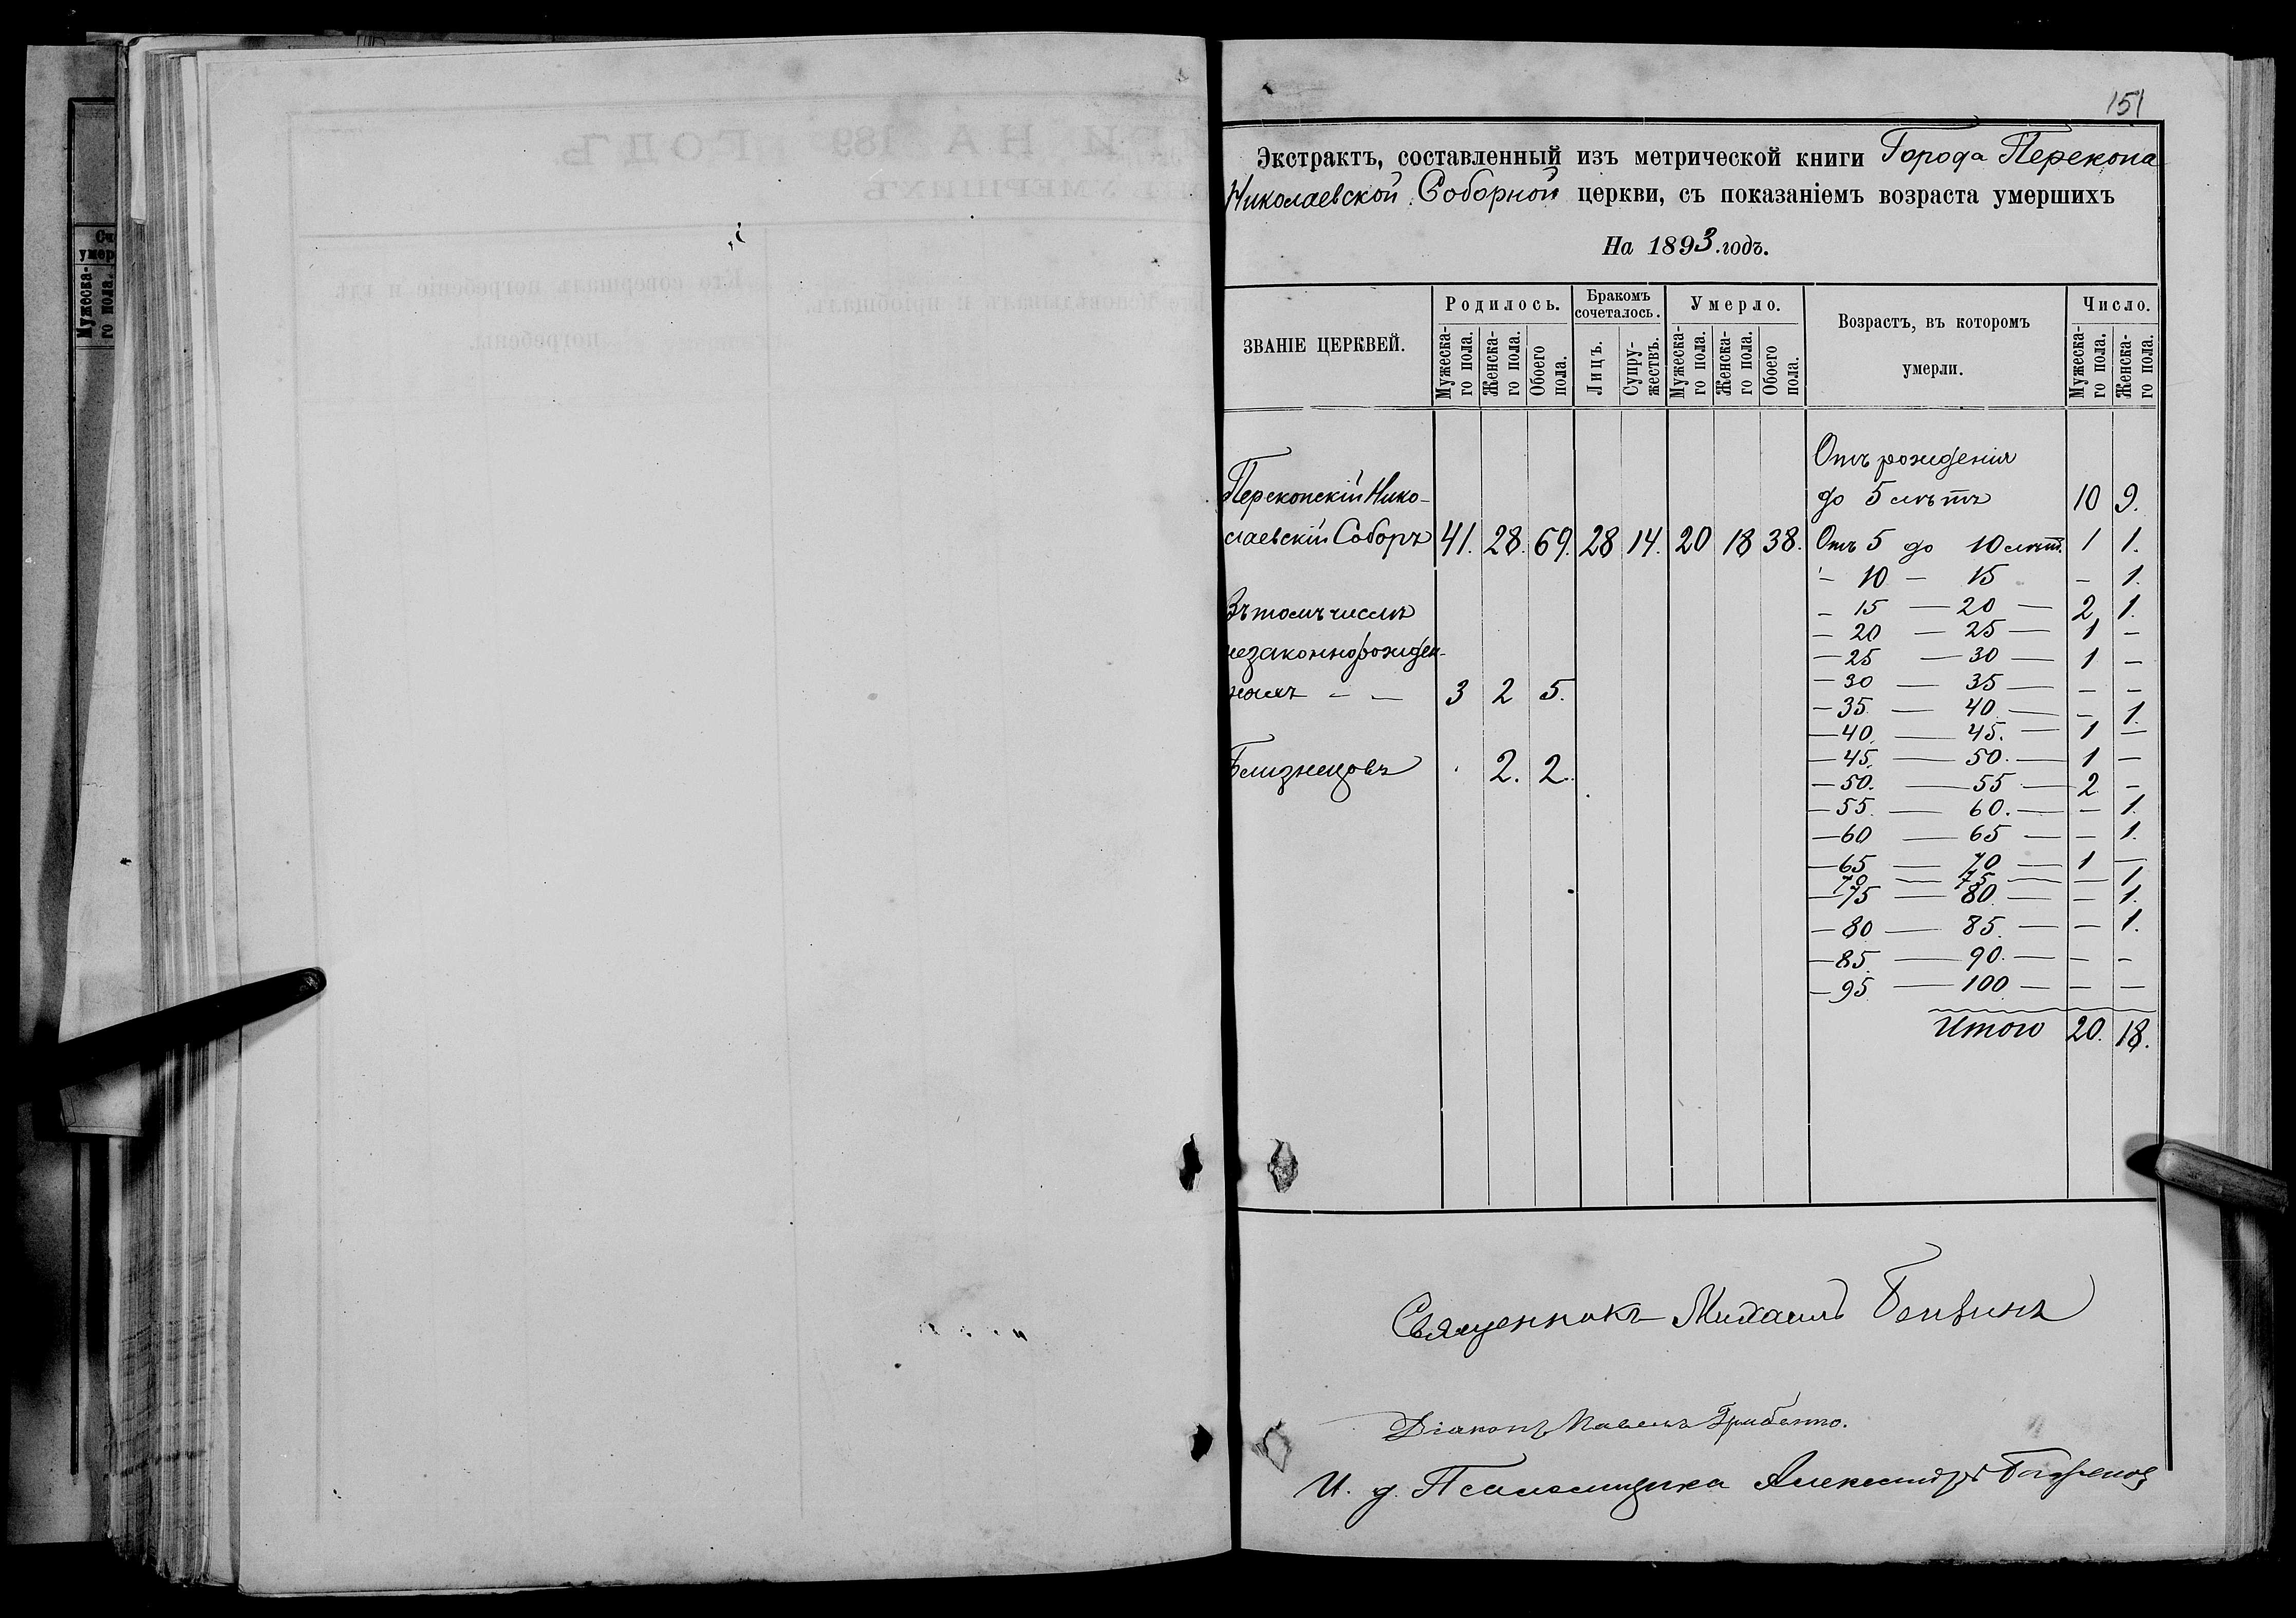 151
Экстрактъ, составленный изъ метрической книги Города Перекопа
Николаевской Соборной церкви, съ показаніемъ возраста умершихъ
На 1893 годъ.
ЗВАНІЕ ЦЕРКВЕЙ. Родилось. Бракомъ сочеталось. Умерло. Возрастъ, въ которомъ умерли. Число.
Мужеска-го пола. Женска-го пола. Обоего пола. Лицъ. Супру-жествъ. Мужеска-го пола. Женска-го пола. Обоего пола. Мужеска-го пола. Женска-го пола.
Отъ рожденія
Перекопскій Нико- до 5 лѣтъ 10 9.
лаевскій Соборъ 41. 28. 69. 28 14. 20 18 38. Отъ 5 до 10 лѣтъ. 1 1.
- 10 - 15 - 1.
Въ томъ числѣ - 15 - 20 - 2 1.
- 20 - 25 - 1 -
незаконнорожден- - 25 - 30 - 1 -
ныхъ - - 3 2 5. - 30 - 35 - - -
- 35 - 40 - - 1.
- 40. - 45. - 1 -
Близнецовъ . 2. 2. - 45. - 50. - 1 -
- 50. - 55 - 2 -
- 55. - 60. - - 1.
- 60 - 65 - - 1.
- 65 - 70 - 1 -
70 - 75 - - 1
- 75 - 80. - - 1.
- 80 - 85. - - 1.
- 85. - 90. - - -
- 95. - 100 - - -
Итого 20. 18.
Священникъ Михаилъ
Діаконъ Павелъ
И. д. Псаломщика Александръ